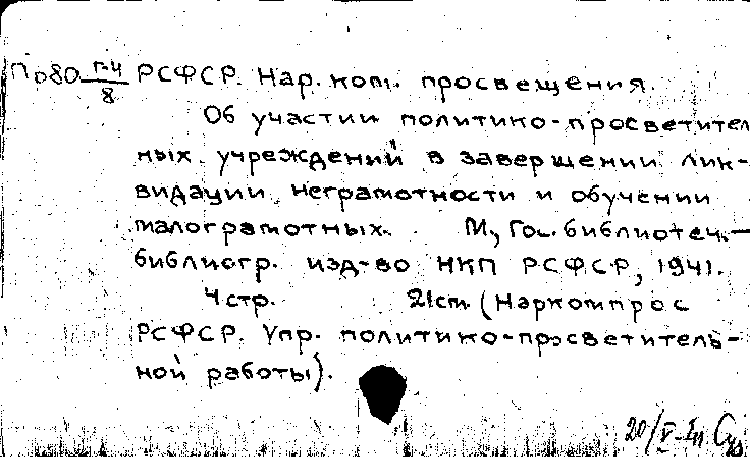 По80 Г-4/8 РСФСР. Нар. ком. просвещения.
Об участии политико-просветител
ных учреждений в завершении лик-
видации неграмотности и обучении
малограмотных. М., Гос. библиотеч.-
библиогр. изд-во НКП РСФСР, 1941.
4 стр. 21 cm. (Наркомпрос
РСФСР. Упр. политико-просветитель-
ной работы).
20/V-